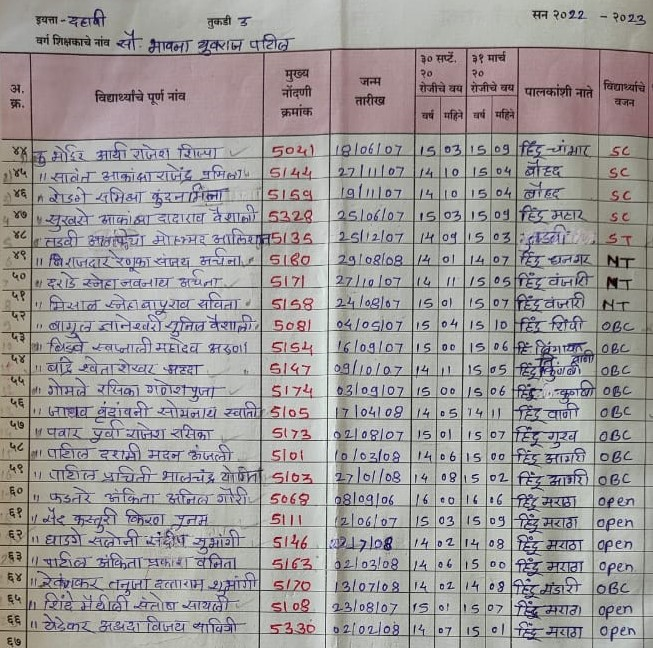 इयत्ता - दहावी तुकडी उ सन २०२२ - २०२३
वर्ग शिक्षकाचे नांव सौ. भावना युवराज पाटिल
अ. क्र. विद्यार्थ्यांचे पूर्ण नांव मुख्य नोंदणी क्रमांक जन्म तारीख ३० सप्टें. २० रोजीचे वय ३१ मार्च २० रोजीचे वय पालकांशी नाते विद्यार्थ्यांचे वजन
वर्ष महिने वर्ष महिने
४४ कु आर्या राजेश शिल्पा 5041 18/06/07 15 03 15 09 हिंदू चांभार SC
४५ " सावंत आकांक्षा राजेंद्र प्रमिला 5144 27/11/07 14 10 15 04 बौद्ध SC
४६ " शेडगे समिक्षा कुंदन 5159 19/11/07 14 10 15 04 बौद्ध SC
४७ " सुखसे आकांक्षा दादाराव वैशाली 5328 25/06/07 15 03 15 09 हिंदू महार SC
४८ " तडवी मोहम्मद 5135 25/12/07 14 09 15 03 तडवी ST
४९ " बिराजदार रेणुका संजय अर्चना 5180 29/08/08 14 01 14 07 हिंदू धनगर NT
५० " दराडे स्नेहा नवनाथ अर्चना 5171 27/10/07 14 11 15 05 हिंदू वंजारी NT
५१ " मिसाळ स्नेहा बापूराव सविता 5158 24/08/07 15 01 15 07 हिंदू वंजारी NT
५२ " बागुल ज्ञानेश्वरी सुनिल वैशाली 5081 04/05/07 15 04 15 10 हिंदू शिंपी OBC
५३ " स्वप्नाली महादेव अरुणा 5154 16/09/07 15 00 15 06 हिं लिंगायत वाणी OBC
५४ " बांद्रे श्वेता शेखर श्रद्धा 5147 09/10/07 14 11 15 05 हिंदू कुणबी OBC
५५ " गोमले रसिका गणेश पुजा 5174 03/09/07 15 00 15 06 हिंदू कुणबी OBC
५६ " जाधव वृंदावनी सोमनाथ स्वाती 5105 17/04/08 14 05 14 11 हिंदू वाणी OBC
५७ " पवार पुर्वा राजेश रसिका 5173 02/08/07 15 01 15 07 हिंदू गुरव OBC
५८ " पाटील मदन अंजली 5101 10/03/08 14 06 15 00 हिंदू आगरी OBC
५९ " पाटील प्रचिती भालचंद्र योगिता 5103 27/01/08 14 08 15 02 हिंदू आगरी OBC
६० " फडतरे अंकिता अनिल गौरी 5068 08/09/06 16 00 16 06 हिंदू मराठा open
६१ " सैद कस्तुरी किरण पुनम 5111 12/06/07 15 03 15 09 हिंदू मराठा open
६२ " घाडगे सलोनी संदीप शुभांगी 5146 14 02 14 08 हिंदू मराठा open
६३ " पाटील अंकिता प्रकाश वनिता 5163 02/03/08 14 06 15 00 हिंदू मराठा open
६४ " रेवणकर तनुजा दत्ताराम शुभांगी 5170 13/07/08 14 02 14 08 हिंदू भंडारी OBC
६५ " शिंदे मैथीली संतोष सायली 5108 23/08/07 15 01 15 07 हिंदू मराठा open
६६ " येडेकर अक्षदा विजय सावित्री 5330 02/02/08 14 07 15 01 हिंदू मराठा open
६७